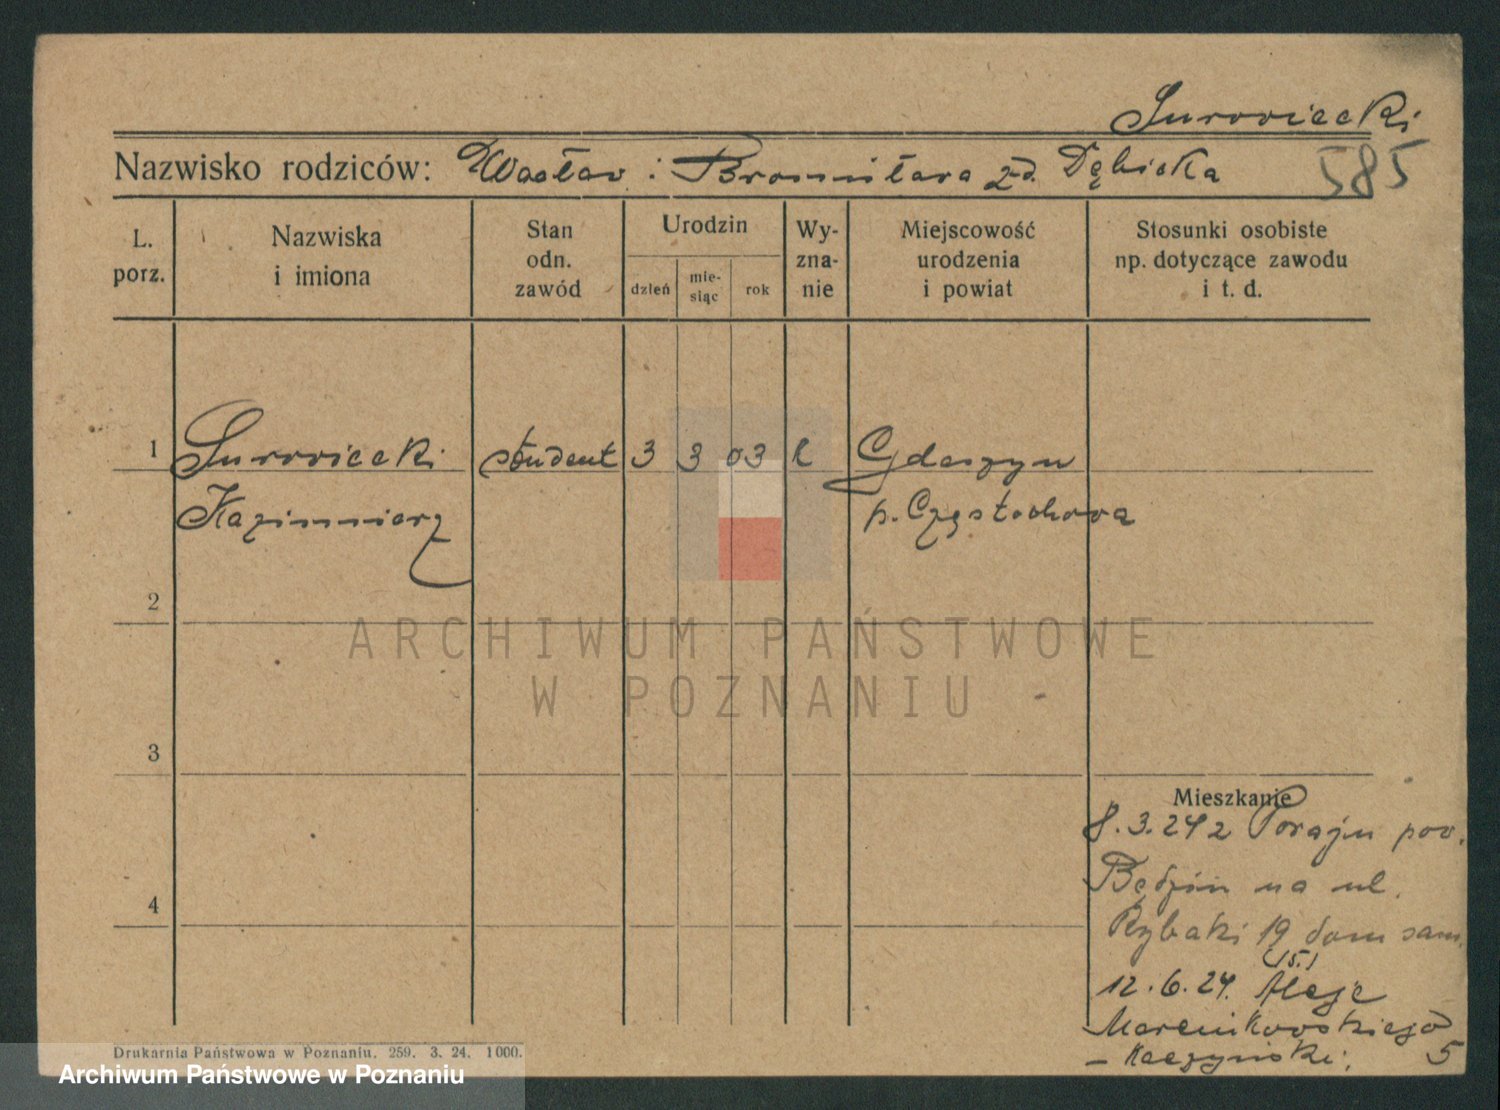 Surowiecki
Nazwisko rodziców: Wacław i Bronisława zd. Dębicka
585
L. porz.
Nazwiska i imiona
Stan odn. zawód
Urodzin
dzień
mie- siąc
rok
Wy- zna- nie
Miejscowość urodzenia i powiat
Stosunki osobiste np. dotyczące zawodu i t. d.
1 Surowiecki student 3 3 03 k Gdaszyn
Kazimierz p. Częstochowa
2
3
4
Mieszkanie
8.3.24 z Poraju pow.
Będzin na ul.
Rybaki 19 dom sam.
(15.)
12.6.24. Aleje
Marcinkowskiego
– Kaczyński. 5
Drukarnia Państwowa w Poznaniu. 259. 3. 24. 1000.
ARCHIWUM PAŃSTWOWE
W POZNANIU
Archiwum Państwowe w Poznaniu